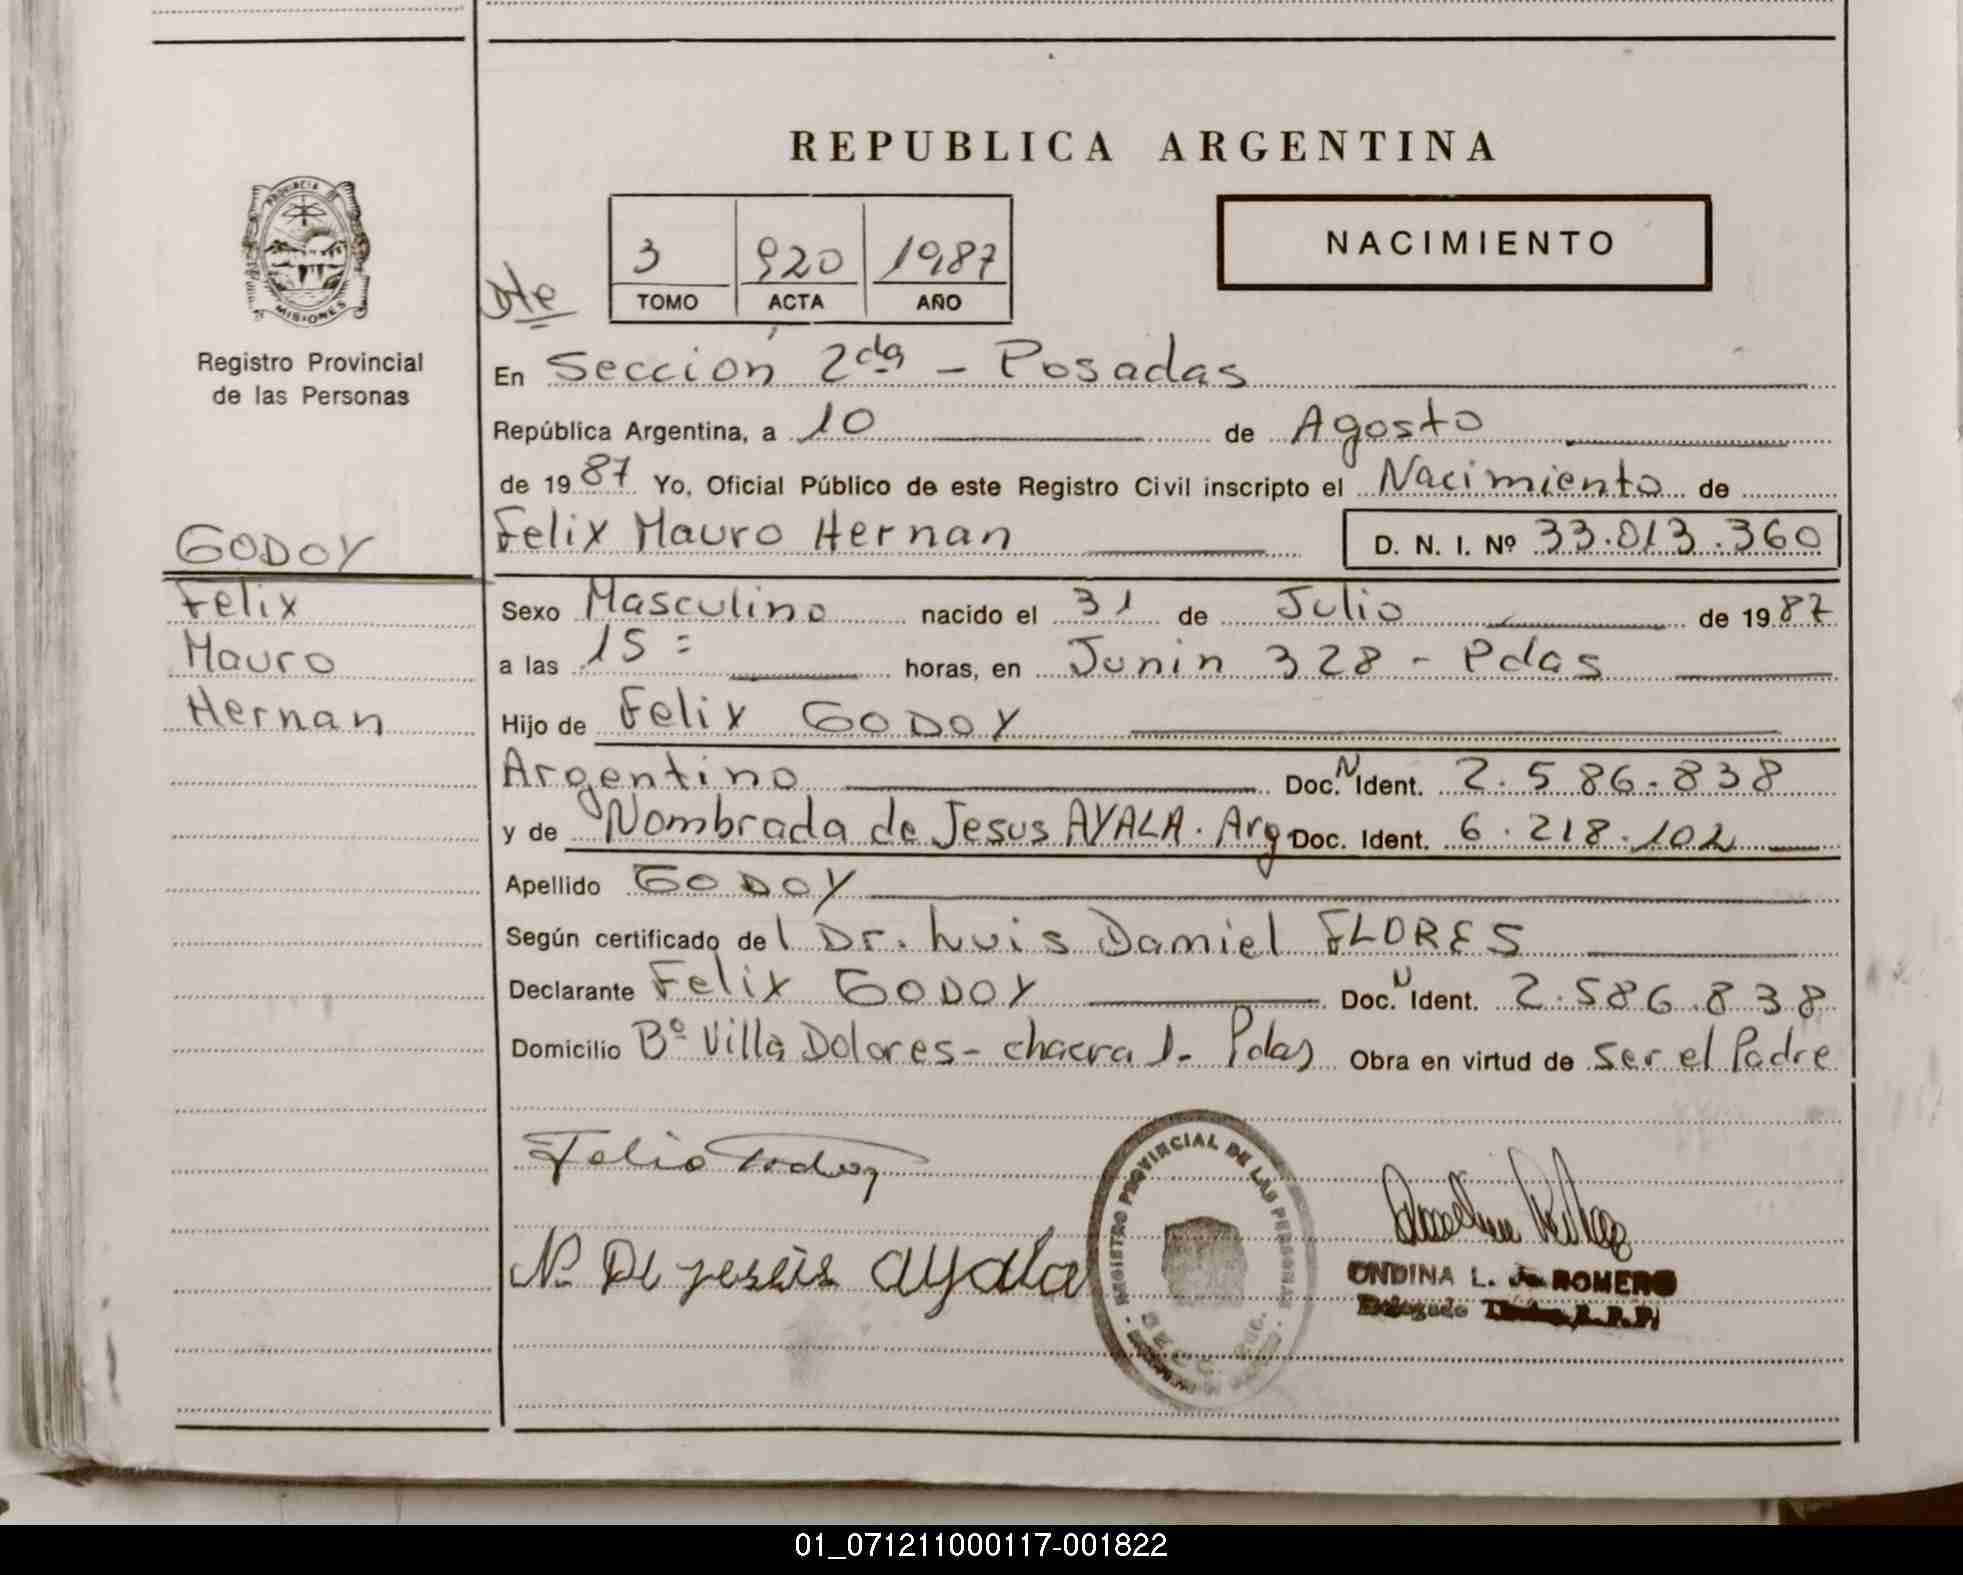 REPUBLICA ARGENTINA
PROVINCIA DE MISIONES
Registro Provincial
de las Personas
3 920 1987
TOMO ACTA AÑO
NACIMIENTO
En Sección 2da - Posadas
República Argentina, a 10 de Agosto
de 1987 Yo, Oficial Público de este Registro Civil inscripto el Nacimiento de
Felix Mauro Hernan D. N. I. Nº 33.013.360
GODOY
Felix
Mauro
Hernan
Sexo Masculino nacido el 31 de Julio de 1987
a las 15= horas, en Junin 328 - Pdas
Hijo de Felix GODOY
Argentino Doc. N Ident. 2.586.838
y de Nombrada de Jesus AYALA. Arg Doc. Ident. 6.218.102
Apellido GODOY
Según certificado del Dr. Luis Damiel FLORES
Declarante Felix GODOY Doc. N Ident. 2.586.838
Domicilio Bº Villa Dolores - chacra 1- Pdas Obra en virtud de ser el Padre
N. De jesús ayala
REGISTRO PROVINCIAL DE LAS PERSONAS
SECC.
ONDINA L. de ROMERO
Delegado
01_071211000117-001822